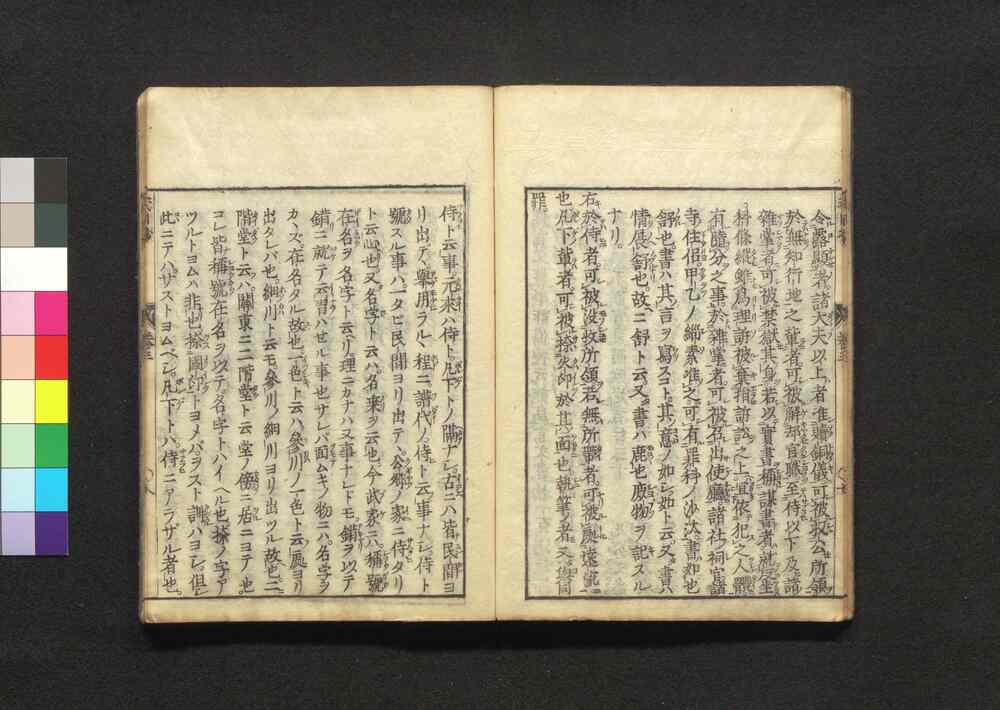 令露顕者諸大夫以上者准贖銅儀可被収公所領
於無知行地之輩者可被解却官職至侍以下及諸
雑掌者可被禁獄其身若以實書稱謀書者
科條縱雖為理訴被棄捐訴訟之上宜依犯之人
有贓分之事於雑掌者可被召出使廳諸社祠官諸
寺住侶甲乙ノ緇素准之可有罪科ノ沙汰書如也
舒也書ハ其言ヲ寫スコト其意ノ如シ如ト云又書ハ
情展舒也故ニ舒ト云又書ハ庶也庶物ヲ記スル
ナリ
右於侍者可被没收所領若無所帶者可被處遠流
也凡下輩者可被捺火印於其面也執筆ノ者又與同
罪
侍ト云事元來ハ侍ト凡下トノ隔ナシ古ニハ皆民間ヨ
リ出テ舉用ラル丶程ニ譜代ノ侍ト云事ナシ侍ト
號スル事ハ一タビ民間ヨリ出テ公卿ノ家ニ侍タリ
ト云心也又名字ト云ハ名乗ヲ云也今武家ニハ稱號
在名ヲ名字ト云リ理ニカナハヌ事ナレドモ錯ヲ以テ
錯ニ就テ云習ハセル事也サレバ面ムキノ物ニハ名字ヲ
カ丶ズ在名タル故也一色ト云ハ參川ノ一色ト云處ヨリ
出タレバ也細川ト云モ參川ノ細川ヨリ出ツル故也二
階堂ト云ハ關東ニ二階堂ト云堂ノ傍ニ居ニヨテ也
コレ皆稱號在名ヲ以テ名字トハイヘル也捺ノ字ヲ
ツルトヨムハ非也捺圖印トヨメバヲスト訓ハヨシ但
此ニテハサストヨムベシ凡下トハ侍ニアラザル者也